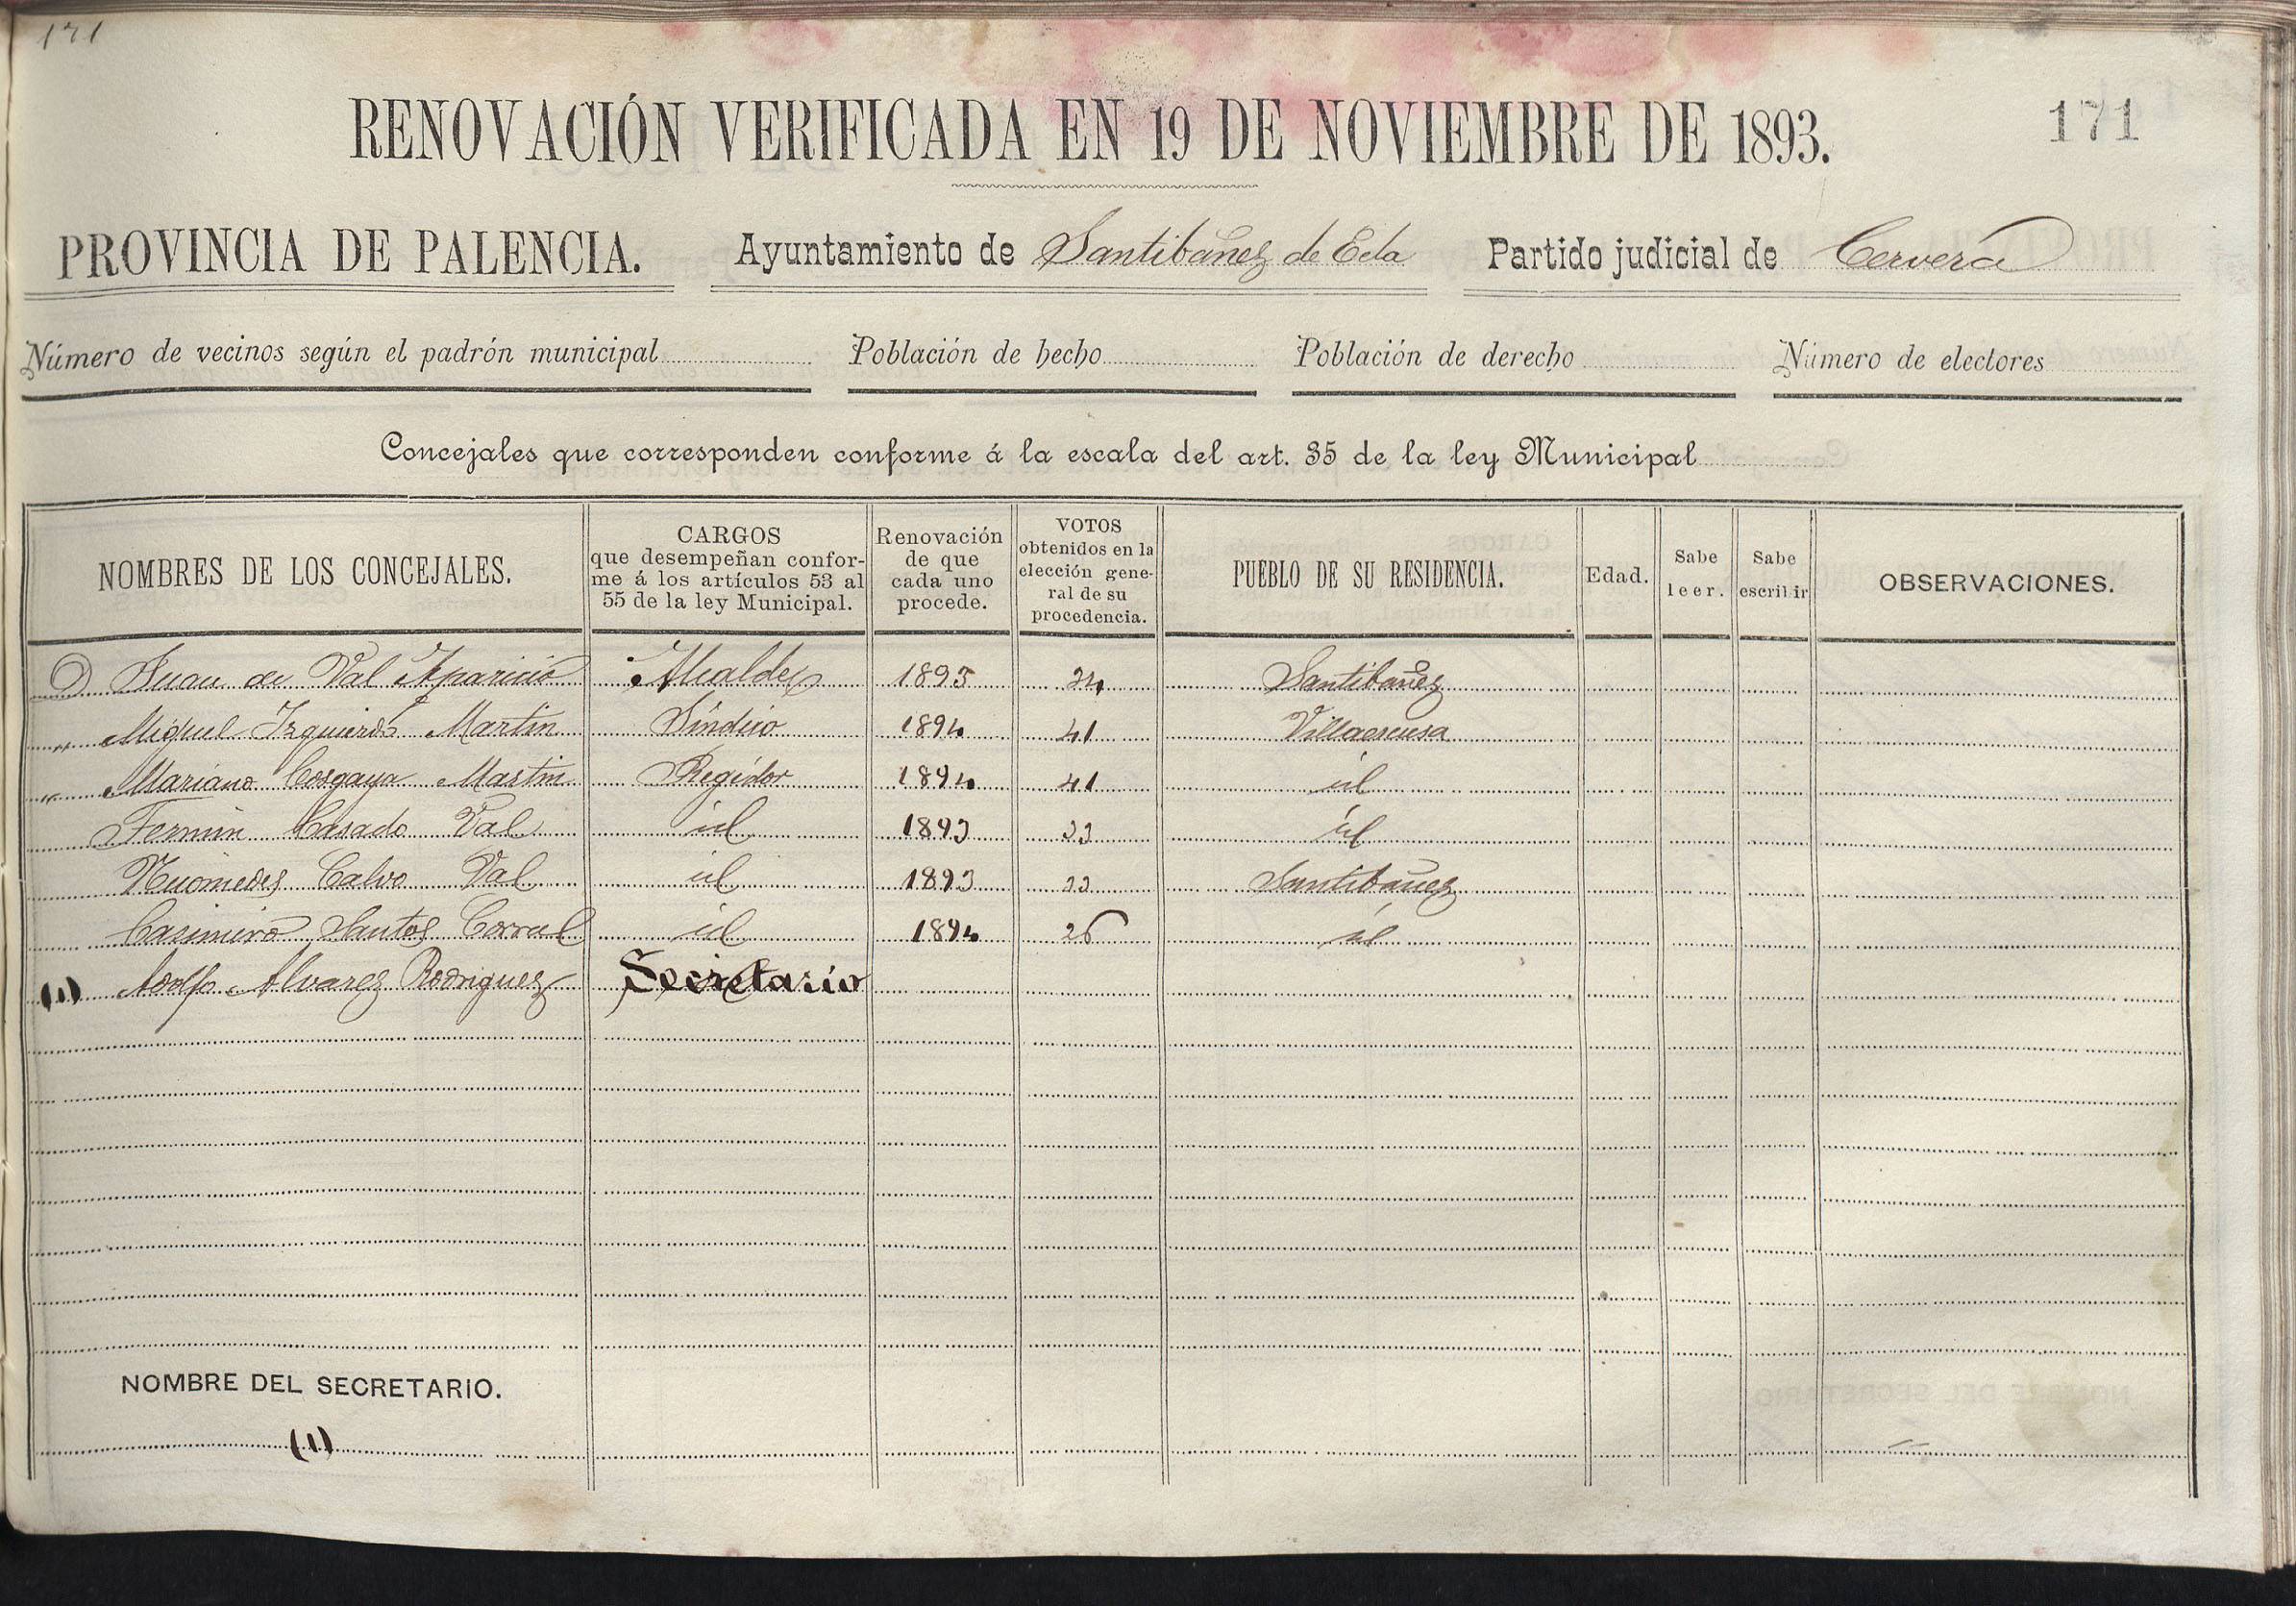 171
RENOVACIÓN VERIFICADA EN 19 DE NOVIEMBRE DE 1893. 171
PROVINCIA DE PALENCIA. Ayuntamiento de Santibañez de Ecla Partido judicial de Cervera
Número de vecinos según el padrón municipal Población de hecho Población de derecho Número de electores
Concejales que corresponden conforme á la escala del art. 35 de la ley Municipal
NOMBRES DE LOS CONCEJALES. CARGOS que desempeñan confor- me á los artículos 53 al 55 de la ley Municipal. Renovación de que cada uno procede. VOTOS obtenidos en la elección gene- ral de su procedencia. PUEBLO DE SU RESIDENCIA. Edad. Sabe leer. Sabe escribir OBSERVACIONES.
D Juan de Val Aparicio Alcalde 1893 24 Santibañez
" Miguel Izquierdo Martin Síndico 1894 41 Villaescusa
" Mariano Cosgaya Martin Regidor 1894 41 id
Fermin Casado Val id 1893 33 id
Nicomedes Calvo Val id 1893 33 Santibañez
Casimiro Santos Corral id 1894 26 id
(1) Adolfo Alvarez Rodriguez Secretario
NOMBRE DEL SECRETARIO.
(1)